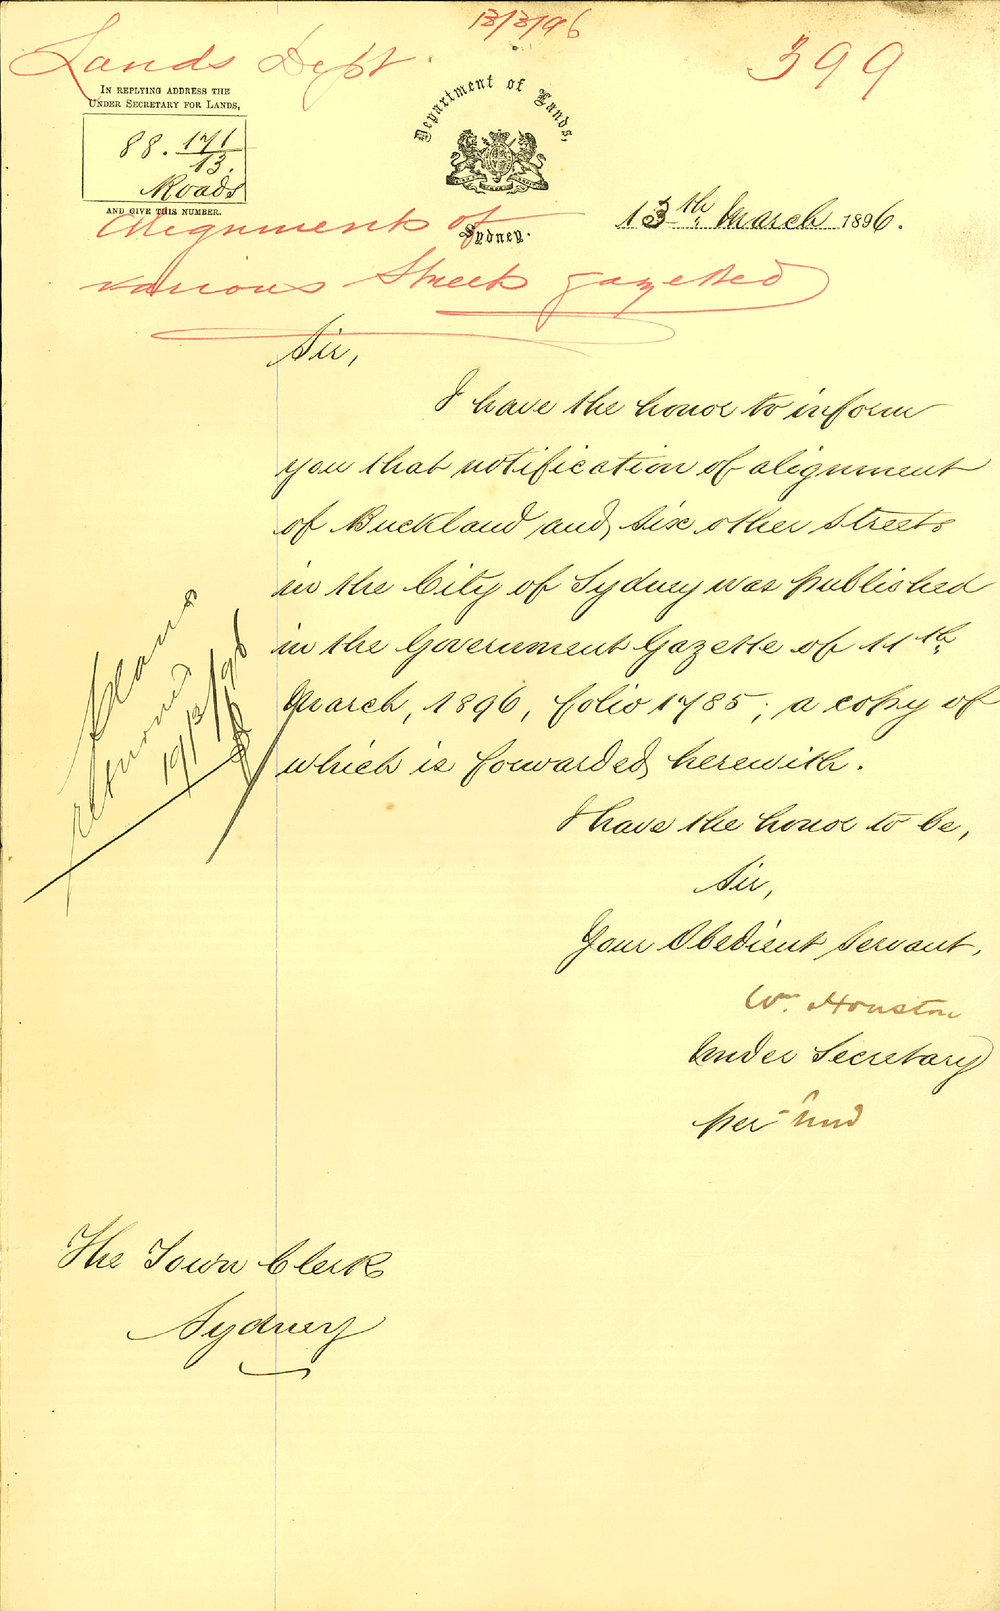 13/3/96
Lands Dept
399
IN REPLYING ADDRESS THE
UNDER SECRETARY FOR LANDS,
88. 171/13.
Roads
AND GIVE THIS NUMBER.
Department of Lands,
Sydney.
13th March 1896.
Alignment of
various Streets gazetted
Sir,
I have the honor to inform
you that notification of alignment
of Buckland and six other streets
in the City of Sydney was published
in the Government Gazette of 11th
March, 1896, folio 1785; a copy of
which is forwarded herewith.
plans
returned
19/3/96
I have the honor to be,
Sir,
Your Obedient Servant,
Wm. Houston
Under Secretary
per
The Town Clerk
Sydney